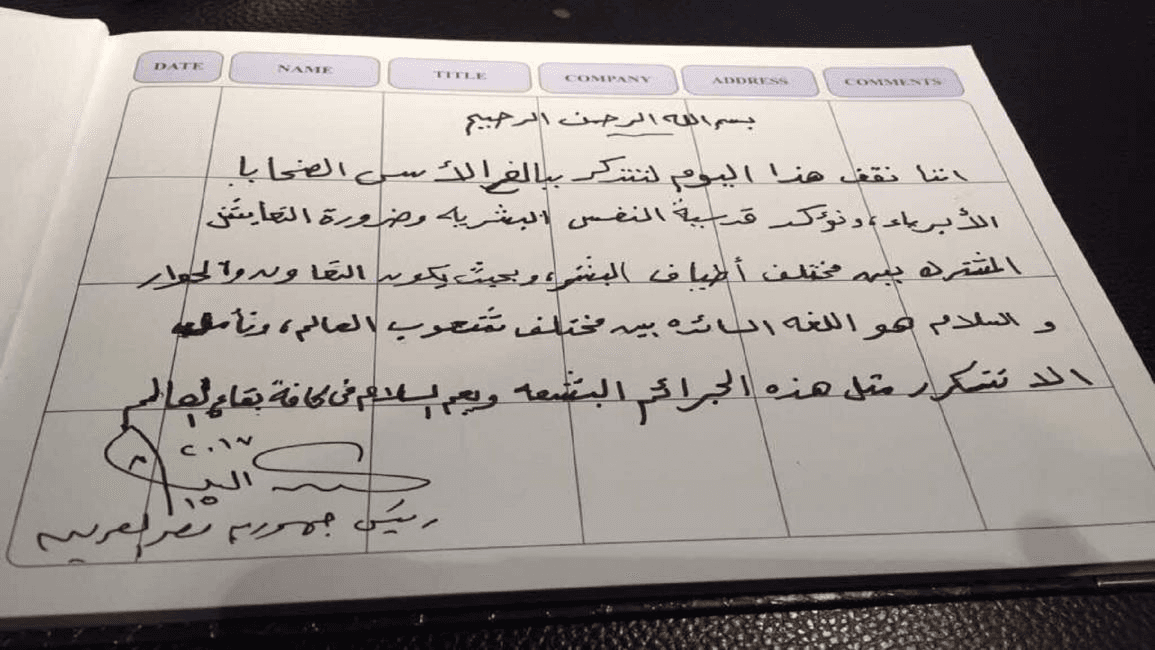 DATE NAME TITLE COMPANY ADDRESS COMMENTS
بسم الله الرحمن الرحيم
اننا نقف هذا اليوم لنتذكر ببالغ الأسى الضحايا
الأبرياء، ونؤكد قدسية النفس البشريه وضرورة التعايش
المشترك بين مختلف أطياف البشر، وبحيث يكون التعاون والحوار
و السلام هو اللغه السائده بين مختلف شعوب العالم، ونأمل
الا تتكرر مثل هذه الجرائم البشعه ويعم السلام في كافة بقاع العالم
٢٠١٧
رئيس جمهورية مصر العربيه